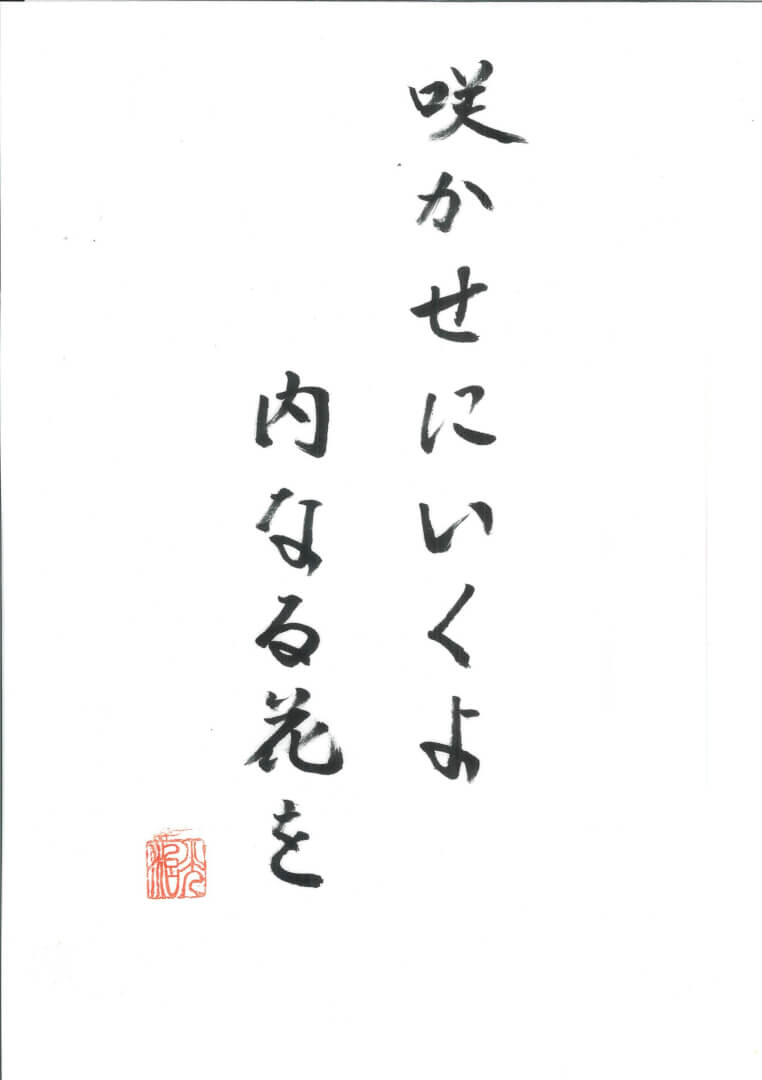 咲かせにいくよ
内なる花を